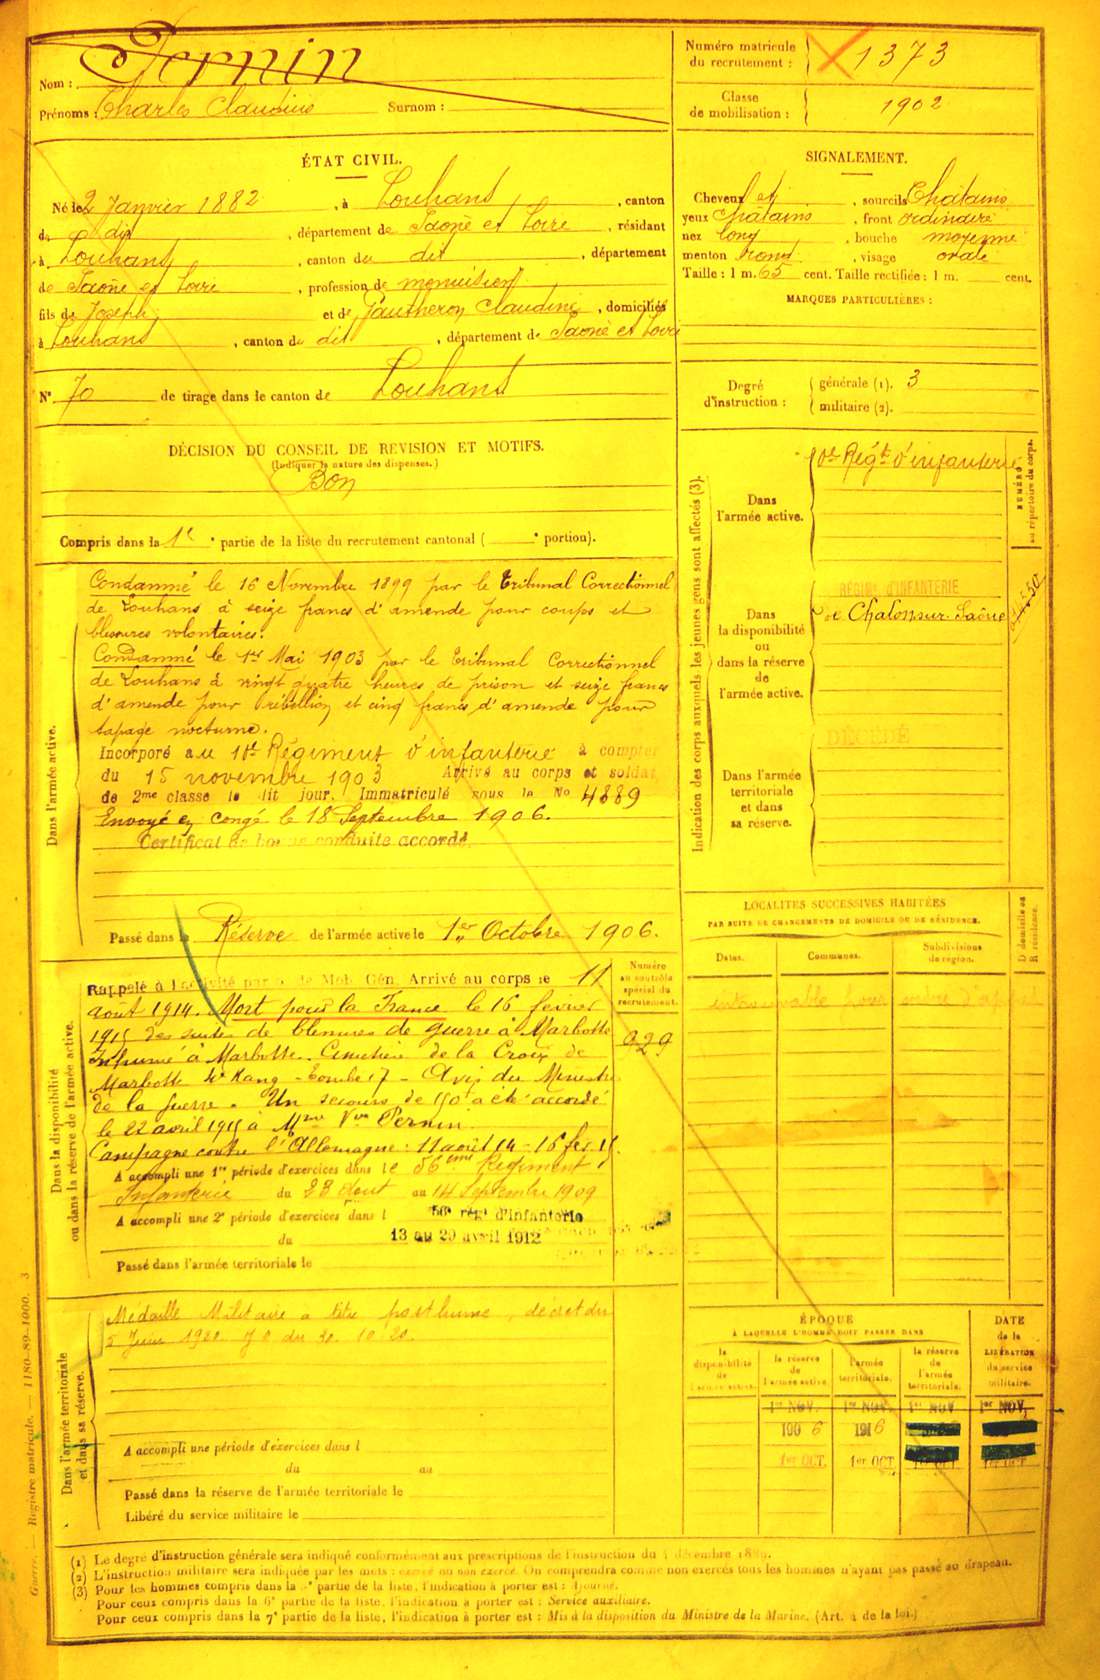 Nom : Pernin
Prénoms : Charles Claudius Surnom :
Numéro matricule du recrutement : 1373
Classe de mobilisation : 1902
ÉTAT CIVIL.
Né le 2 Janvier 1882, à Louhans, canton
du dit, département de Saône et Loire, résidant
à Louhans, canton du dit, département
de Saône et Loire, profession de menuisier
fils de Joseph et de Gautheron Claudine, domiciliés
à Louhans, canton du dit, département de Saône et Loire
N° 70 de tirage dans le canton de Louhans
SIGNALEMENT.
Cheveux et, sourcils Châtains
yeux Châtains, front ordinaire
nez long, bouche moyenne
menton rond, visage ovale
Taille : 1 m. 65 cent. Taille rectifiée : 1 m. cent.
MARQUES PARTICULIÈRES :
Degré d'instruction : générale (1). 3
militaire (2).
DÉCISION DU CONSEIL DE REVISION ET MOTIFS.
(Indiquer la nature des dispenses.)
Bon
Compris dans la 1e partie de la liste du recrutement cantonal ( e portion).
Dans l'armée active.
Condamné le 16 Novembre 1899 par le Tribunal Correctionnel
de Louhans à seize francs d'amende pour coups et
blessures volontaires.
Condamné le 1er Mai 1903 par le Tribunal Correctionnel
de Louhans à vingt quatre heures de prison et seize francs
d'amende pour rébellion et cinq francs d'amende pour
tapage nocturne.
Incorporé au 10e Régiment d'infanterie à compter
du 15 novembre 1903 Arrivé au corps et soldat
de 2me classe le dit jour. Immatriculé sous le No 4889
Envoyé en congé le 18 Septembre 1906.
Certificat de bonne conduite accordé.
Passé dans la Réserve de l'armée active le 1er Octobre 1906.
Indication des corps auxquels les jeunes gens sont affectés (3).
NUMÉRO au répertoire du corps.
Dans l'armée active.
10e Régt d'infanterie
Dans la disponibilité ou dans la réserve de l'armée active.
RÉGIM. D'INFANTERIE
de Chalon sur Saône
Dans l'armée territoriale et dans sa réserve.
DÉCÉDÉ
LOCALITÉS SUCCESSIVES HABITÉES
PAR SUITE DE CHANGEMENTS DE DOMICILE OU DE RÉSIDENCE.
Dates. Communes. Subdivisions de région. D domicile ou R résidence.
Dans la disponibilité ou dans la réserve de l'armée active.
Numéro au contrôle spécial du recrutement.
929
Rappelé à l'activité par de Mob. Gén. Arrivé au corps le 11
août 1914. Mort pour la France le 16 février
1915 des suites de blessures de guerre à Marbotte
Inhumé à Marbotte. Cimetière de la Croix de
Marbotte 4e Rang - Tombe 17 - Avis du Ministre
de la guerre. Un secours de 150 a été accordé
le 22 avril 1915 à Mme Vve Pernin.
Campagne contre l'Allemagne : 11 août 14 - 16 fév. 15
A accompli une 1re période d'exercices dans le 56ème Régiment
Infanterie du 23 Août au 14 Septembre 1909
A accompli une 2e période d'exercices dans l 56e régt d'Infanterie
du 13 au 29 avril 1912
Passé dans l'armée territoriale le
Dans l'armée territoriale et dans sa réserve.
Médaille Militaire à titre posthume, décret du
5 Juin 1920 J O du 30.10.20.
A accompli une période d'exercices dans l
du au
Passé dans la réserve de l'armée territoriale le
Libéré du service militaire le
ÉPOQUE
À LAQUELLE L'HOMME DOIT PASSER DANS
DATE de la LIBÉRATION du service militaire.
la disponibilité de l'armée active. la réserve de l'armée active. l'armée territoriale. la réserve de l'armée territoriale.
1er NOV. 1er NOV. 1er NOV 1er NOV.
1906 1916
1er OCT. 1er OCT 1er OCT 1er OCT
(1) Le degré d'instruction générale sera indiqué conformément aux prescriptions de l'instruction du 4 décembre 1889.
(2) L'instruction militaire sera indiquée par les mots : exercé ou non exercé. On comprendra comme non exercés tous les hommes n'ayant pas passé au drapeau.
(3) Pour les hommes compris dans la e partie de la liste, l'indication à porter est : Ajourné.
Pour ceux compris dans la 6e partie de la liste, l'indication à porter est : Service auxiliaire.
Pour ceux compris dans la 7e partie de la liste, l'indication à porter est : Mis à la disposition du Ministre de la Marine. (Art. 4 de la loi.)
Guerre. — Registre matricule. — 1180-89-1000. 3